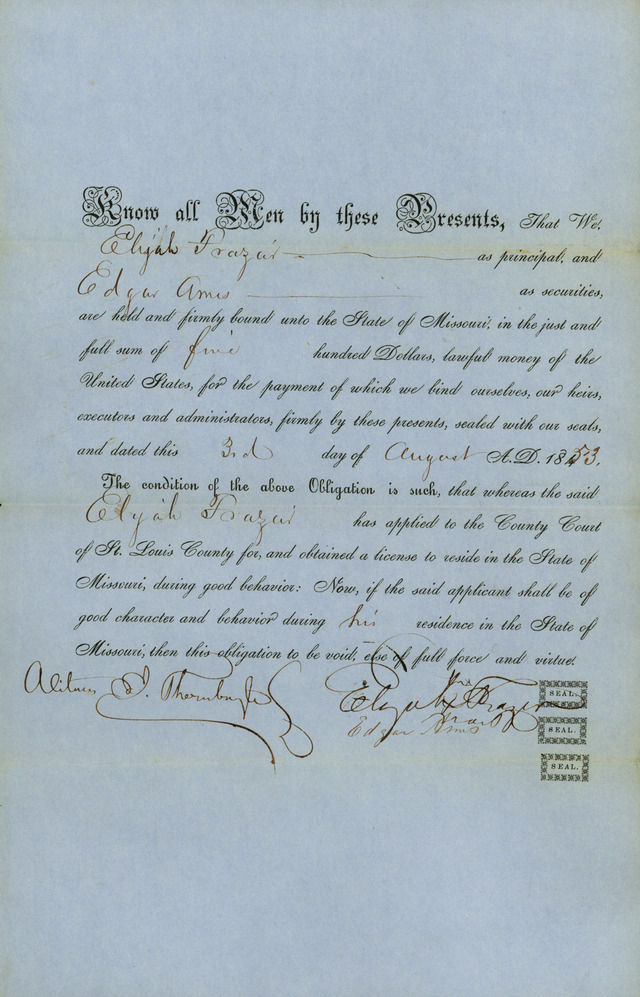 Know all Men by these Presents, That We.
Elijah Frazar as principal, and
Edgar Ames as securities,
are held and firmly bound unto the State of Missouri, in the just and
full sum of five hundred Dollars, lawful money of the
United States, for the payment of which we bind ourselves, our heirs,
executors and administrators, firmly by these presents, sealed with our seals,
and dated this 3rd day of August A.D. 1853.
The condition of the above Obligation is such, that whereas the said
Elijah Frazar has applied to the County Court
of St. Louis County for, and obtained a license to reside in the State of
Missouri, during good behavior: Now, if the said applicant shall be of
good character and behavior during his residence in the State of
Missouri, then this obligation to be void, else of full force and virtue.
Elijah X Frazer SEAL.
mark
Edgar Ames SEAL.
SEAL.